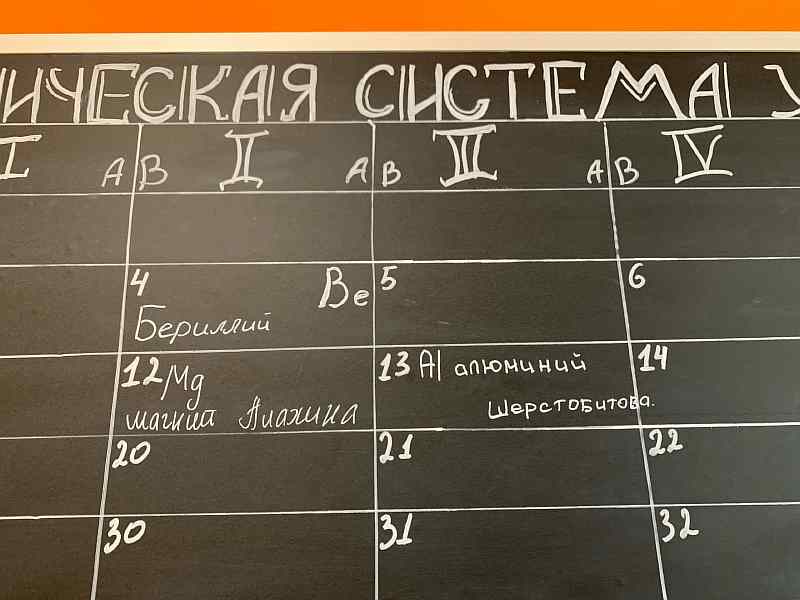 ИЧЕСКАЯ СИСТЕМА У
I A B II A B III A B IV
4 Be 5 6
Бериллий
12 Mg 13 Al алюминий 14
магний Шерстобитова.
20 21 22
30 31 32